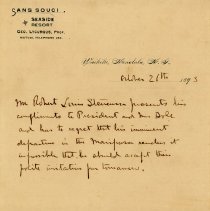 SANS SOUCI.
SEASIDE
RESORT
GEO. LYCURGUS, PROP.
MUTUAL TELEPHONE
Waikiki, Honolulu, H. I.,
October 26th 1893
Mr Robert Louis Stevenson presents his
compliments to President and Mrs Dole
and has to regret that his imminent
departure in the Mariposa renders it
impossible that he should accept their
polite invitation for tomorrow.